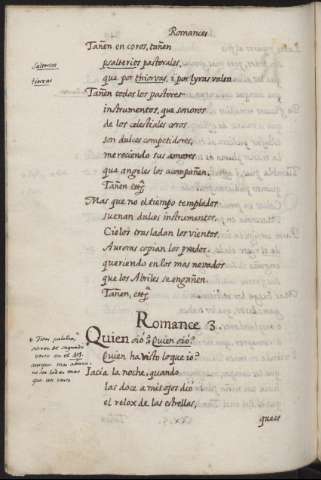 Romances
Tañen en coros, tañen
psalterios pastorales,
que por thiorvas, i por lyras valen
Tañen todos los pastores
instrumentos, que sonoros
de los celestiales coros
son dulces competidores,
mereciendo sus amores
que angeles los acompañen,
Tañen etc.
Mas que no el tiempo templados
suenan dulces instrumentos,
Cielos trasladan los vientos,
Auroras copian los prados,
queriendo en los mas nevados
que los Abriles se engañen.
Tañen, etc.
Romance 3.
Quien oió? Quien oió?
Quien ha visto lo que io?
Iacia la noche, quando
las doce a mis ojos dió
el relox de las estrellas,
que es